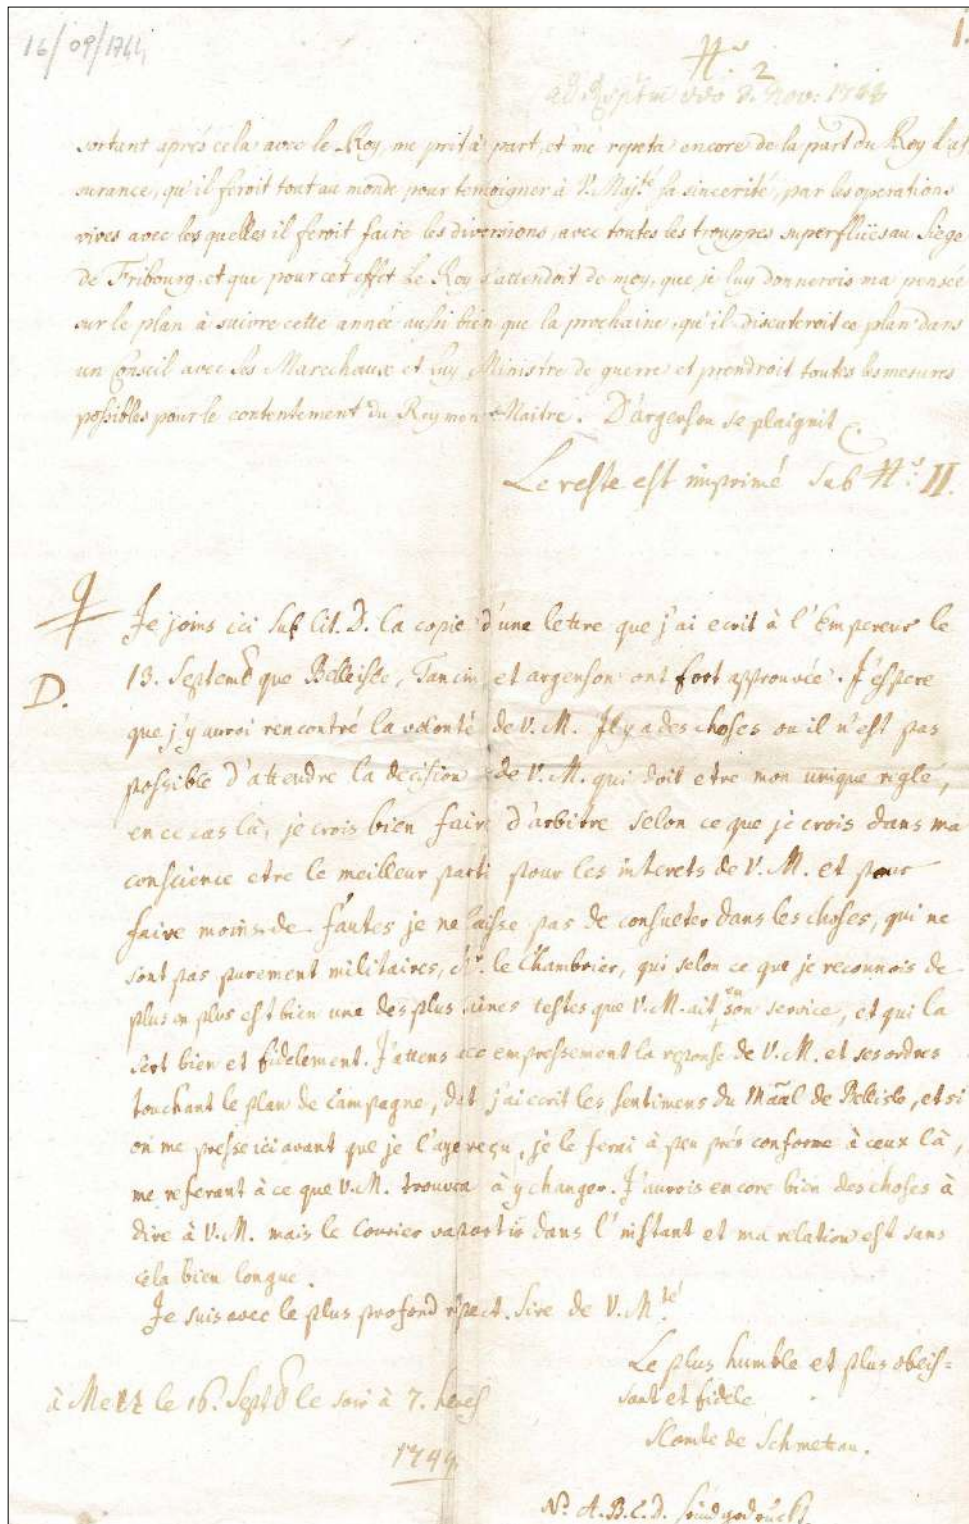 16/09/1744
1.
No. 2
ad Rescriptum de do 3. Nov: 1744
sortant aprés cela avec le Roy, me prit à part, et me repeta encore de la part du Roy l'as
surance, qu'il feroit tout au monde pour temoigner à V. Maj.té sa sincerité, par les operations
vives avec les quelles il feroit faire les diversions, avec toutes les trouppes superflües au Siege
de Fribourg, et que pour cet effet Le Roy s'attendoit de moy, que je luy donnerois ma pensée
sur le plan à suivre cette année aussi bien que la prochaine, qu'il discuteroit ce plan dans
un Conseil avec les Marechaux et luy Ministre de guerre et prendroit toutes les mesures
possibles pour le contentement du Roy mon Maitre. D'argenson se plaignit
Le reste est imprimé sub No. II.
D.
Je joins ici sub lit. D. la copie d'une lettre que j'ai ecrit à l'Empereur le
13. Septemb que Belleisle, Tancin et argenson ont fort approuvée. J'espere
que j'y aurai rencontré la volonté de V. M. Il y a des choses ou il n'est pas
possible d'attendre la decision de V. M. qui doit etre mon unique regle,
en ce cas là, je crois bien faire d'arbitre selon ce que je crois dans ma
conscience etre le meilleur parti pour les interets de V. M. et pour
faire moins de fautes je ne laisse pas de consulter dans les choses, qui ne
sont pas purement militaires, Mr. le Chambrier, qui selon ce que je reconnois de
plus en plus est bien une des plus saines testes que V. M. ait en son service, et qui la
sert bien et fidelement. J'attens avec empressement la reponse de V. M. et ses ordres
touchant le plan de campagne, dont j'ai ecrit les sentimens du Maãl de Bellisle, et si
on me presse ici avant que je l'aye reçu, je le ferai à peu prés conforme à ceux là,
me referant à ce que V. M. trouvera à y changer. J'aurois encore bien des choses à
dire à V. M. mais le Courier va partir dans l'instant et ma relation est sans
cela bien longue.
Je suis avec le plus profond respect. Sire de V. M.té
Le plus humble et plus obeis=
sant et fidele
Comte de Schmettau.
à Metz le 16. Sept le soir à 7. heures
1744
No. A. B. C. D. sind gedruckt.